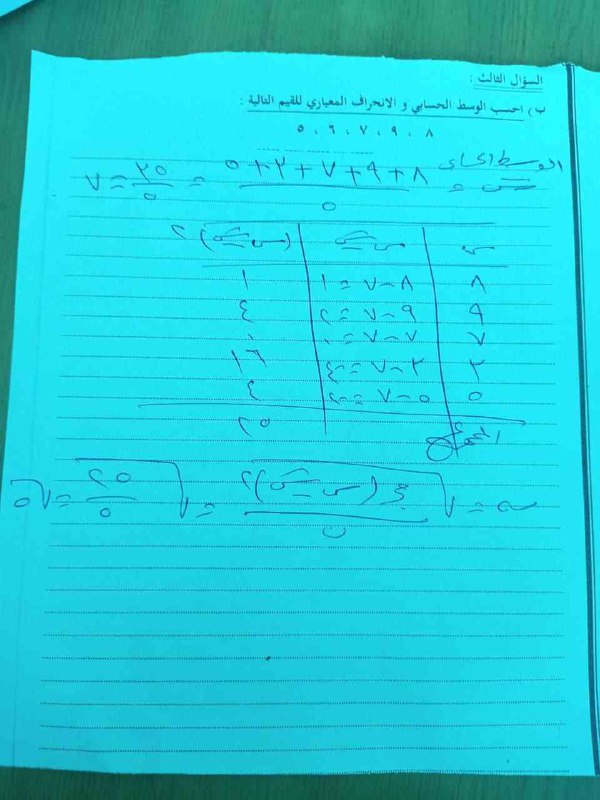 السؤال الثالث :
ب) احسب الوسط الحسابي و الانحراف المعياري للقيم التالية :
٨ ، ٩ ، ٧ ، ٦ ، ٥
الوسط الحسابي
س̄ = ٨+٩+٧+٣+٥ / ٥ = ٣٥ / ٥ = ٧
س س-س̄ (س-س̄)٢
٨ ٨-٧=١ ١
٩ ٩-٧=٢ ٤
٧ ٧-٧=٠ ٠
٣ ٣-٧=-٤ ١٦
٥ ٥-٧=-٢ ٤
المجموع ٢٥
ع = √ مج (س-س̄)٢ / ن = √ ٢٥ / ٥ = √٥